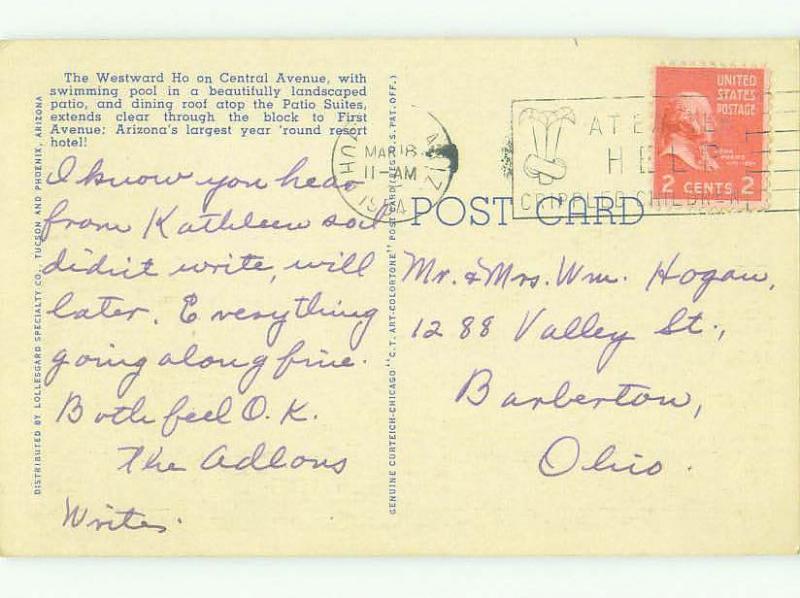 The Westward Ho on Central Avenue, with
swimming pool in a beautifully landscaped
patio, and dining roof atop the Patio Suites,
extends clear through the block to First
Avenue; Arizona's largest year 'round resort
hotel!
I know you hear
from Kathleen so I
didn't write, will
later. Everything
going along fine.
Both feel O.K.
The Adlons
Write.
DISTRIBUTED BY LOLLESGARD SPECIALTY CO., TUCSON AND PHOENIX, ARIZONA
GENUINE CURTEICH-CHICAGO "C.T. ART-COLORTONE" POST CARD (REG. U.S. PAT. OFF.)
ARIZ
MAR 18
11-AM
HELP
CRIPPLED CHILDREN
UNITED
STATES
POSTAGE
JOHN ADAMS
2 CENTS 2
POST CARD
Mr. & Mrs. Wm. Hogan,
1288 Valley St.,
Barberton,
Ohio.